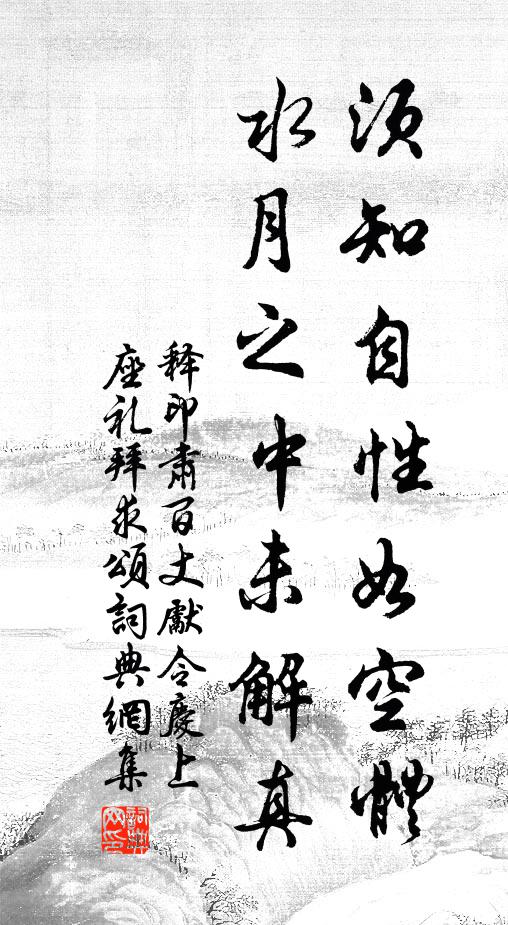 須知自性如空體
水月之中未解真
释印肃百丈獻令慶上
座礼拜求頌詞典網集